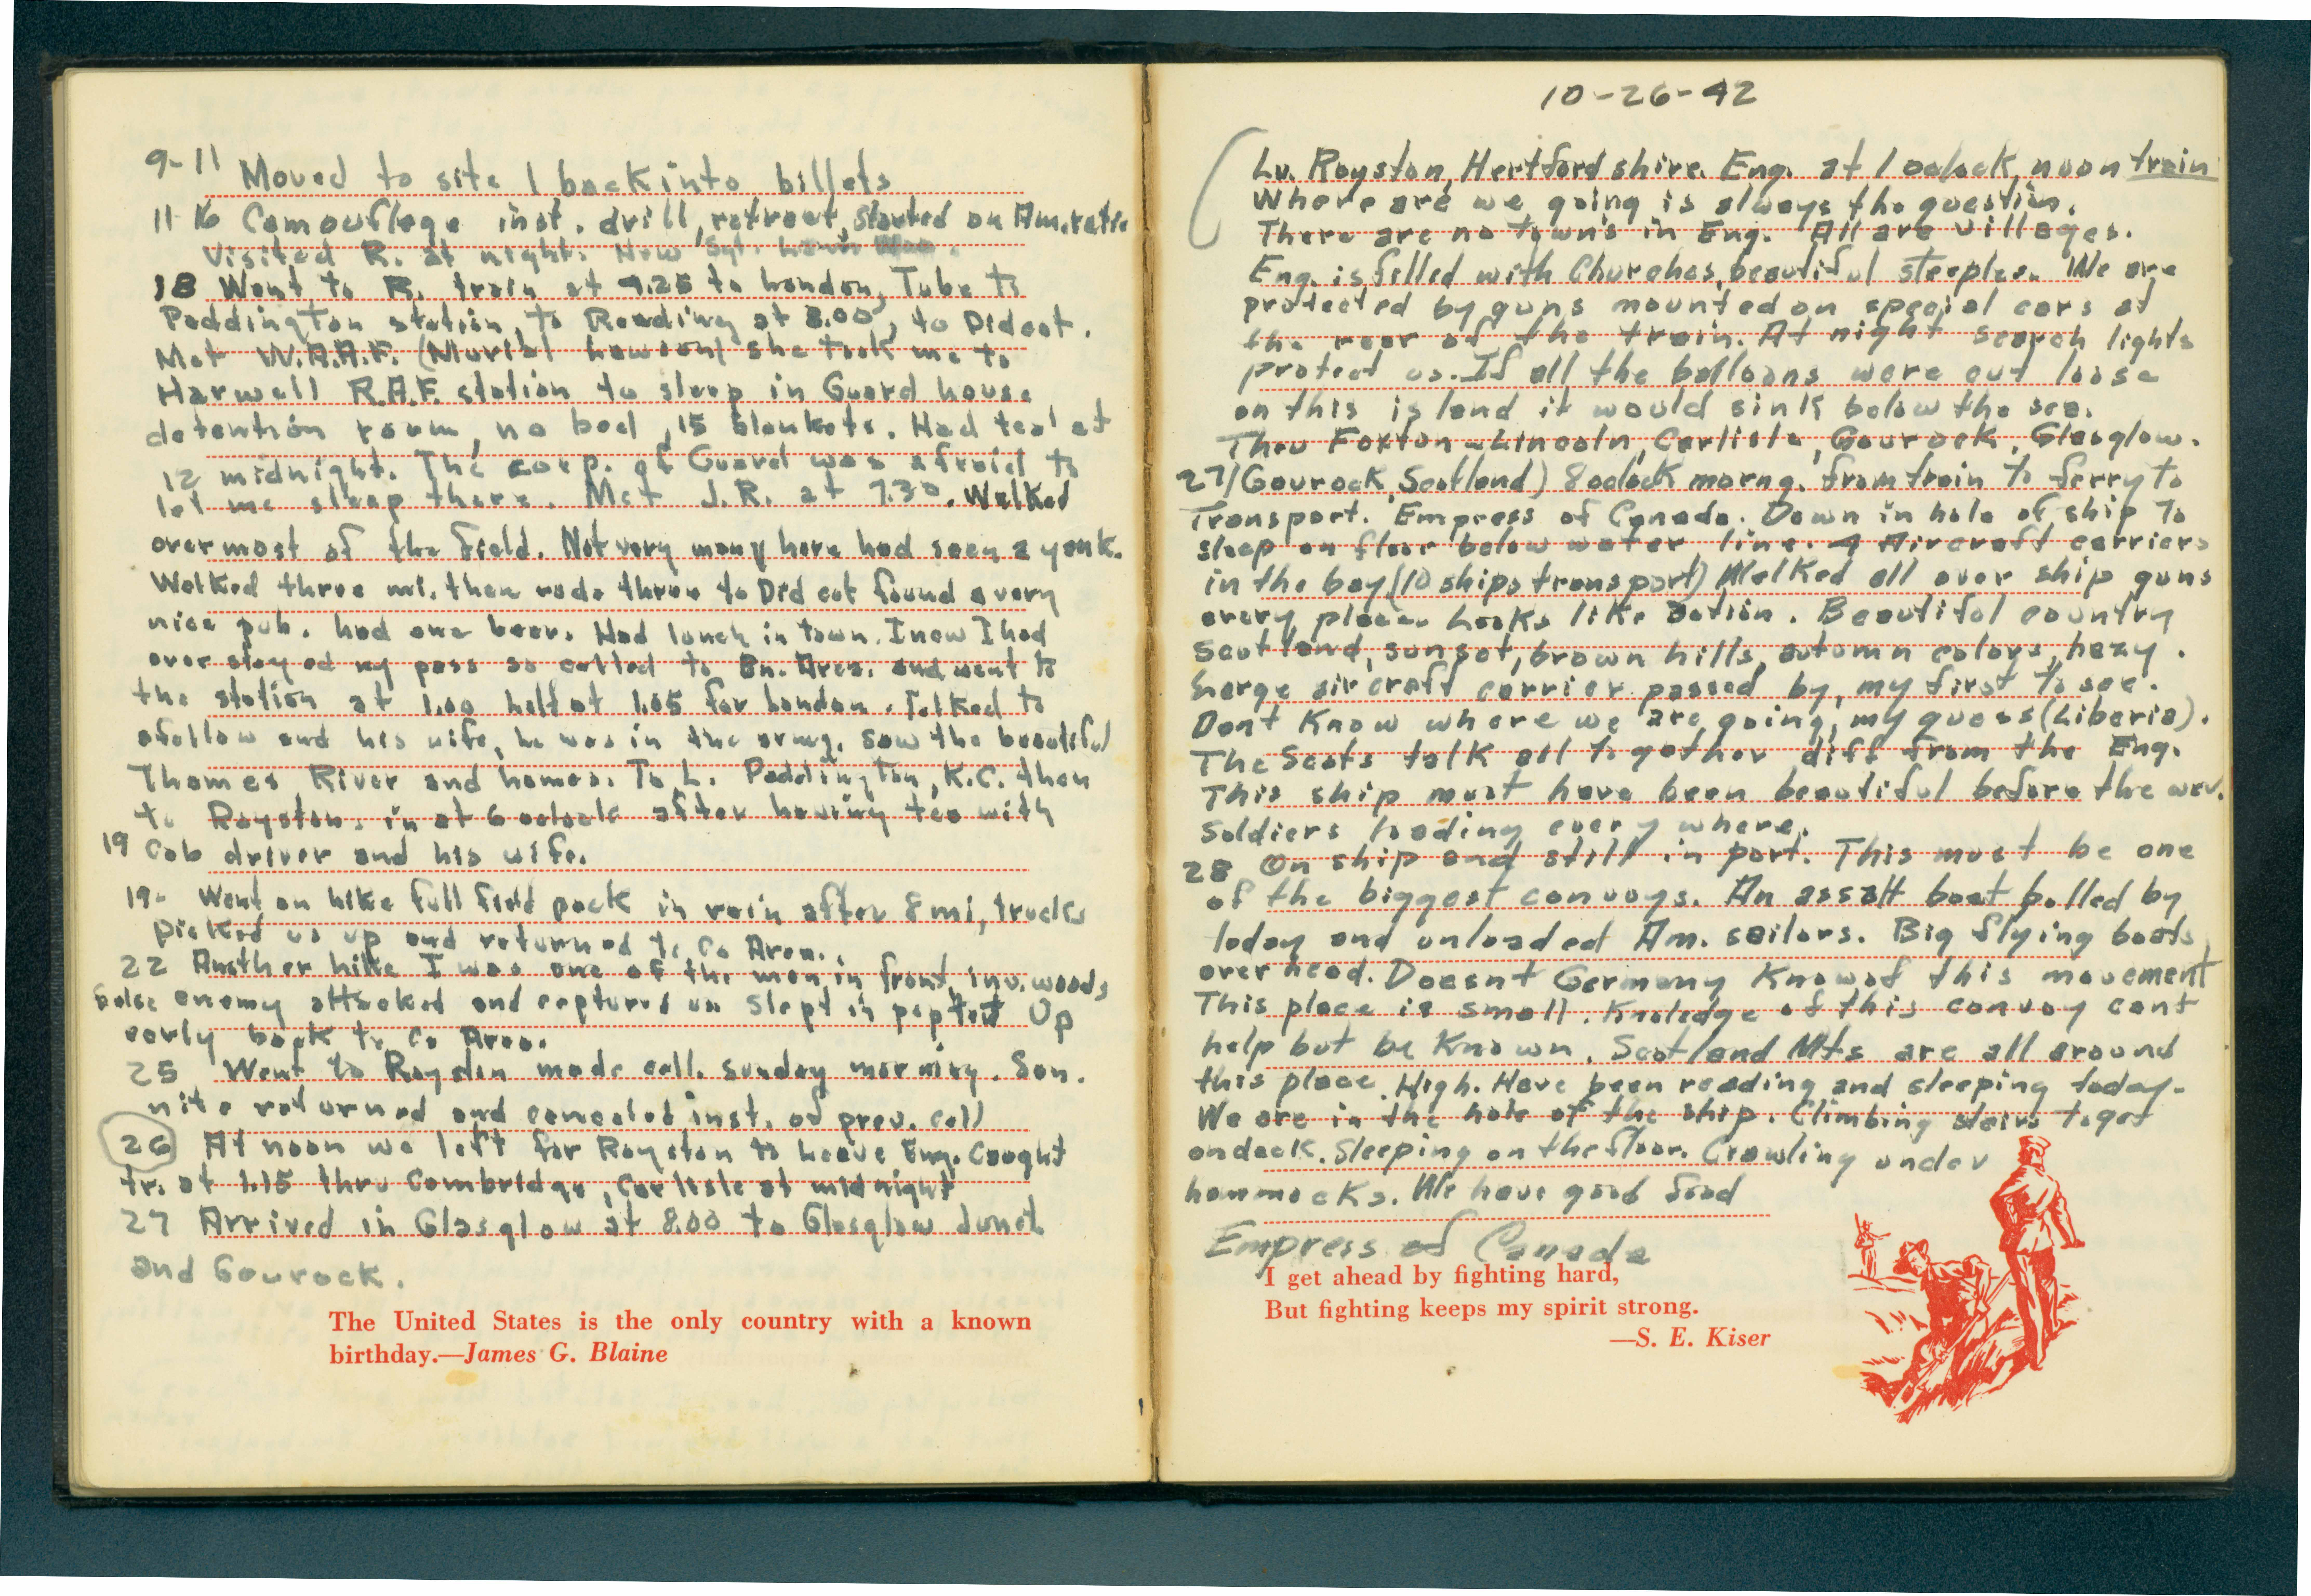 9-11 Moved to site 1 back into billets
11-16 Camouflage inst. drill, retreat, started on Am. ratio
Visited R. at night. New Sgt.
18 Went to R. train at 9.25 to London, Tube to
Paddington station, to Reading at 8.00, to Didcot.
Met W.A.A.F. (Muriel Lawson) she took me to
Harwell R.A.F. station to sleep in Guard house
detention room, no bed, 15 blankets. Had tea at
12 midnight. The corp. of Guard was afraid to
let me sleep there. Met J.R. at 7.30. Walked
over most of the field. Not very many here had seen a yank.
Walked three mi. then rode three to Didcot found a very
nice pub. had one beer. Had lunch in town. I now I had
over stayed my pass so called to Bn. Area. and went to
the station at 1.00 left at 1.05 for London. Talked to
a fellow and his wife, he was in the army. saw the beautiful
Thames River and homes. To L. Paddington, K.C. then
to Royston. in at 6 oclock after having tea with
19 Cab driver and his wife.
19- Went on hike full field pack in rain after 8 mi, trucks
picked us up and returned to Co Area.
22 Another hike I was one of the men in front, in woods
false enemy attacked and captured us slept in pup tent Up
early back to Co Area.
25 Went to Royston made call. Sunday morning. Sun.
nite returned and canceled inst. of prev. call
26 At noon we left for Royston to leave Eng. Caught
tr. at 1.15 thru Cambridge, Carlisle at midnight
27 Arrived in Glasglow at 8.00 to Glasglow Junct.
and Gourock.
The United States is the only country with a known
birthday.—James G. Blaine
10-26-42
Lv. Royston, Hertfordshire. Eng. at 1 oclock, noon train
Where are we going is always the question.
There are no towns in Eng. All are villages.
Eng. is filled with Churches, beautiful steeples. We are
protected by guns mounted on special cars at
the rear of the train. At night search lights
protect us. If all the balloons were cut loose
on this island it would sink below the sea.
Thru Foxton - Lincoln, Carlisle, Gourock, Glasglow.
27/(Gourock, Scotland) 8 oclock morng. from train to ferry to
Transport. Empress of Canada. Down in hole of ship to
sleep on floor below water line. 4 Aircraft carriers
in the bay (10 ships transport) Walked all over ship guns
every place. Looks like action. Beautiful country
Scotland, sunset, brown hills, autumn colors, hazy.
Large aircraft carrier passed by, my first to see.
Dont Know where we are going, my guess (Liberia).
The Scots talk all together diff from the Eng.
This ship must have been beautiful before the war.
Soldiers loading every where.
28 On ship and still in port. This must be one
of the biggest convoys. An assalt boat pulled by
today and unloaded Am. sailors. Big flying boats
over head. Doesnt Germany Know of this movement
This place is small. Knoledge of this convoy cant
help but be Known. Scotland Mts are all around
this place. High. Have been reading and sleeping today.
We are in the hole of the ship. Climbing stairs to get
on deck. Sleeping on the floor. Crawling under
hammocks. We have good food
Empress of Canada
I get ahead by fighting hard,
But fighting keeps my spirit strong.
—S. E. Kiser